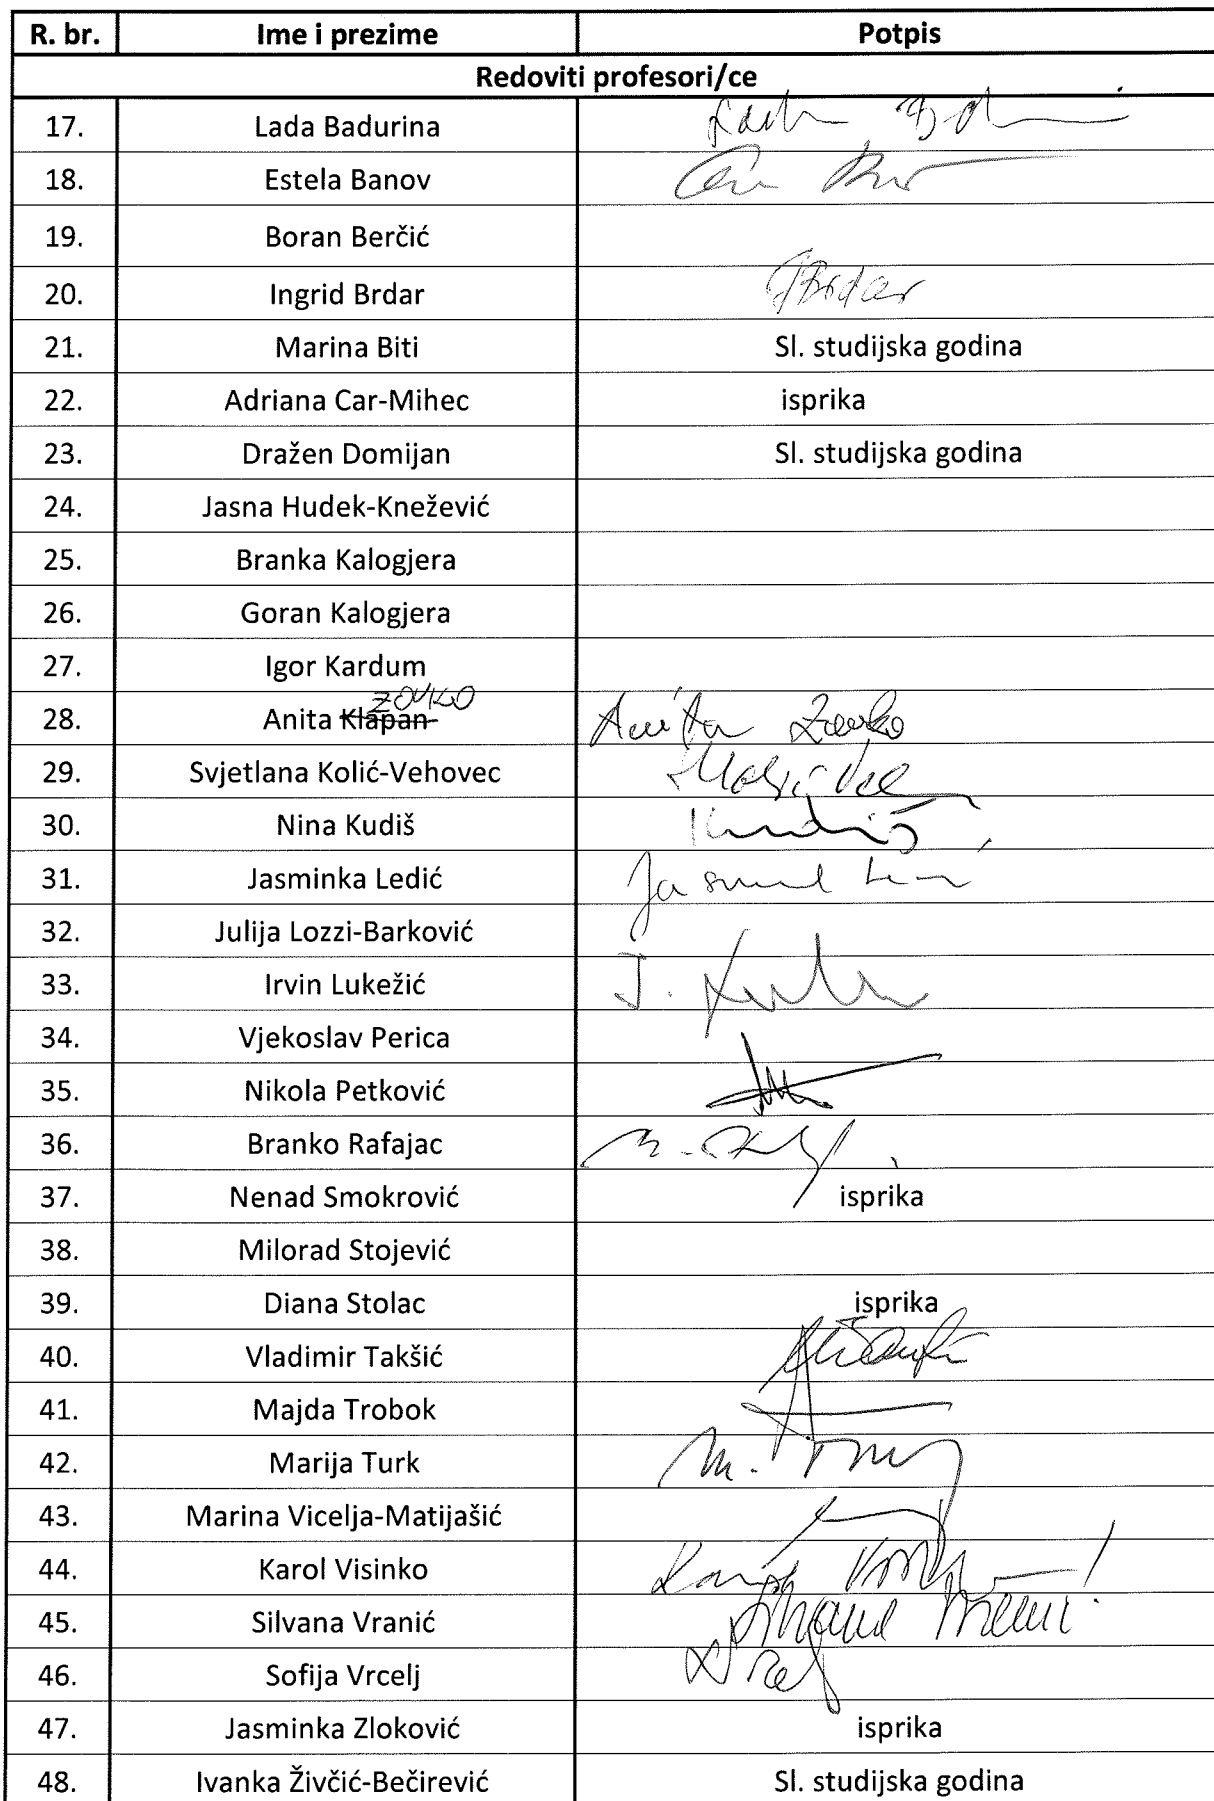 R. br. Ime i prezime Potpis
Redoviti profesori/ce
17. Lada Badurina
18. Estela Banov
19. Boran Berčić
20. Ingrid Brdar IBrdar
21. Marina Biti Sl. studijska godina
22. Adriana Car-Mihec isprika
23. Dražen Domijan Sl. studijska godina
24. Jasna Hudek-Knežević
25. Branka Kalogjera
26. Goran Kalogjera
27. Igor Kardum
ZOVKO
28. Anita Klapan- Anita Zovko
29. Svjetlana Kolić-Vehovec
30. Nina Kudiš Kudiš
31. Jasminka Ledić
32. Julija Lozzi-Barković
33. Irvin Lukežić
34. Vjekoslav Perica
35. Nikola Petković
36. Branko Rafajac
37. Nenad Smokrović isprika
38. Milorad Stojević
39. Diana Stolac isprika
40. Vladimir Takšić
41. Majda Trobok
42. Marija Turk
43. Marina Vicelja-Matijašić
44. Karol Visinko
45. Silvana Vranić
46. Sofija Vrcelj
47. Jasminka Zloković isprika
48. Ivanka Živčić-Bečirević Sl. studijska godina